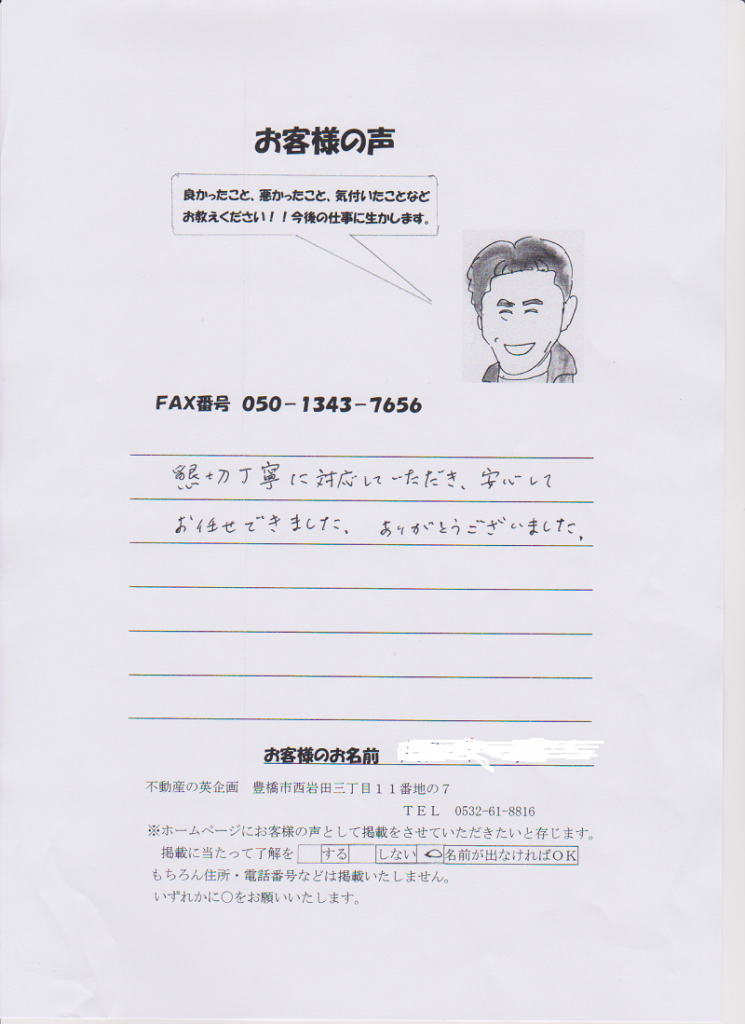 お客様の声
良かったこと、悪かったこと、気付いたことなど
お教えください!!今後の仕事に生かします。
FAX番号 050-1343-7656
懇切丁寧に対応していただき、安心して
お任せできました。ありがとうございました。
お客様のお名前
不動産の英企画 豊橋市西岩田三丁目11番地の7
TEL 0532-61-8816
※ホームページにお客様の声として掲載をさせていただきたいと存じます。
掲載に当たって了解を する しない ○ 名前が出なければOK
もちろん住所・電話番号などは掲載いたしません。
いずれかに○をお願いいたします。